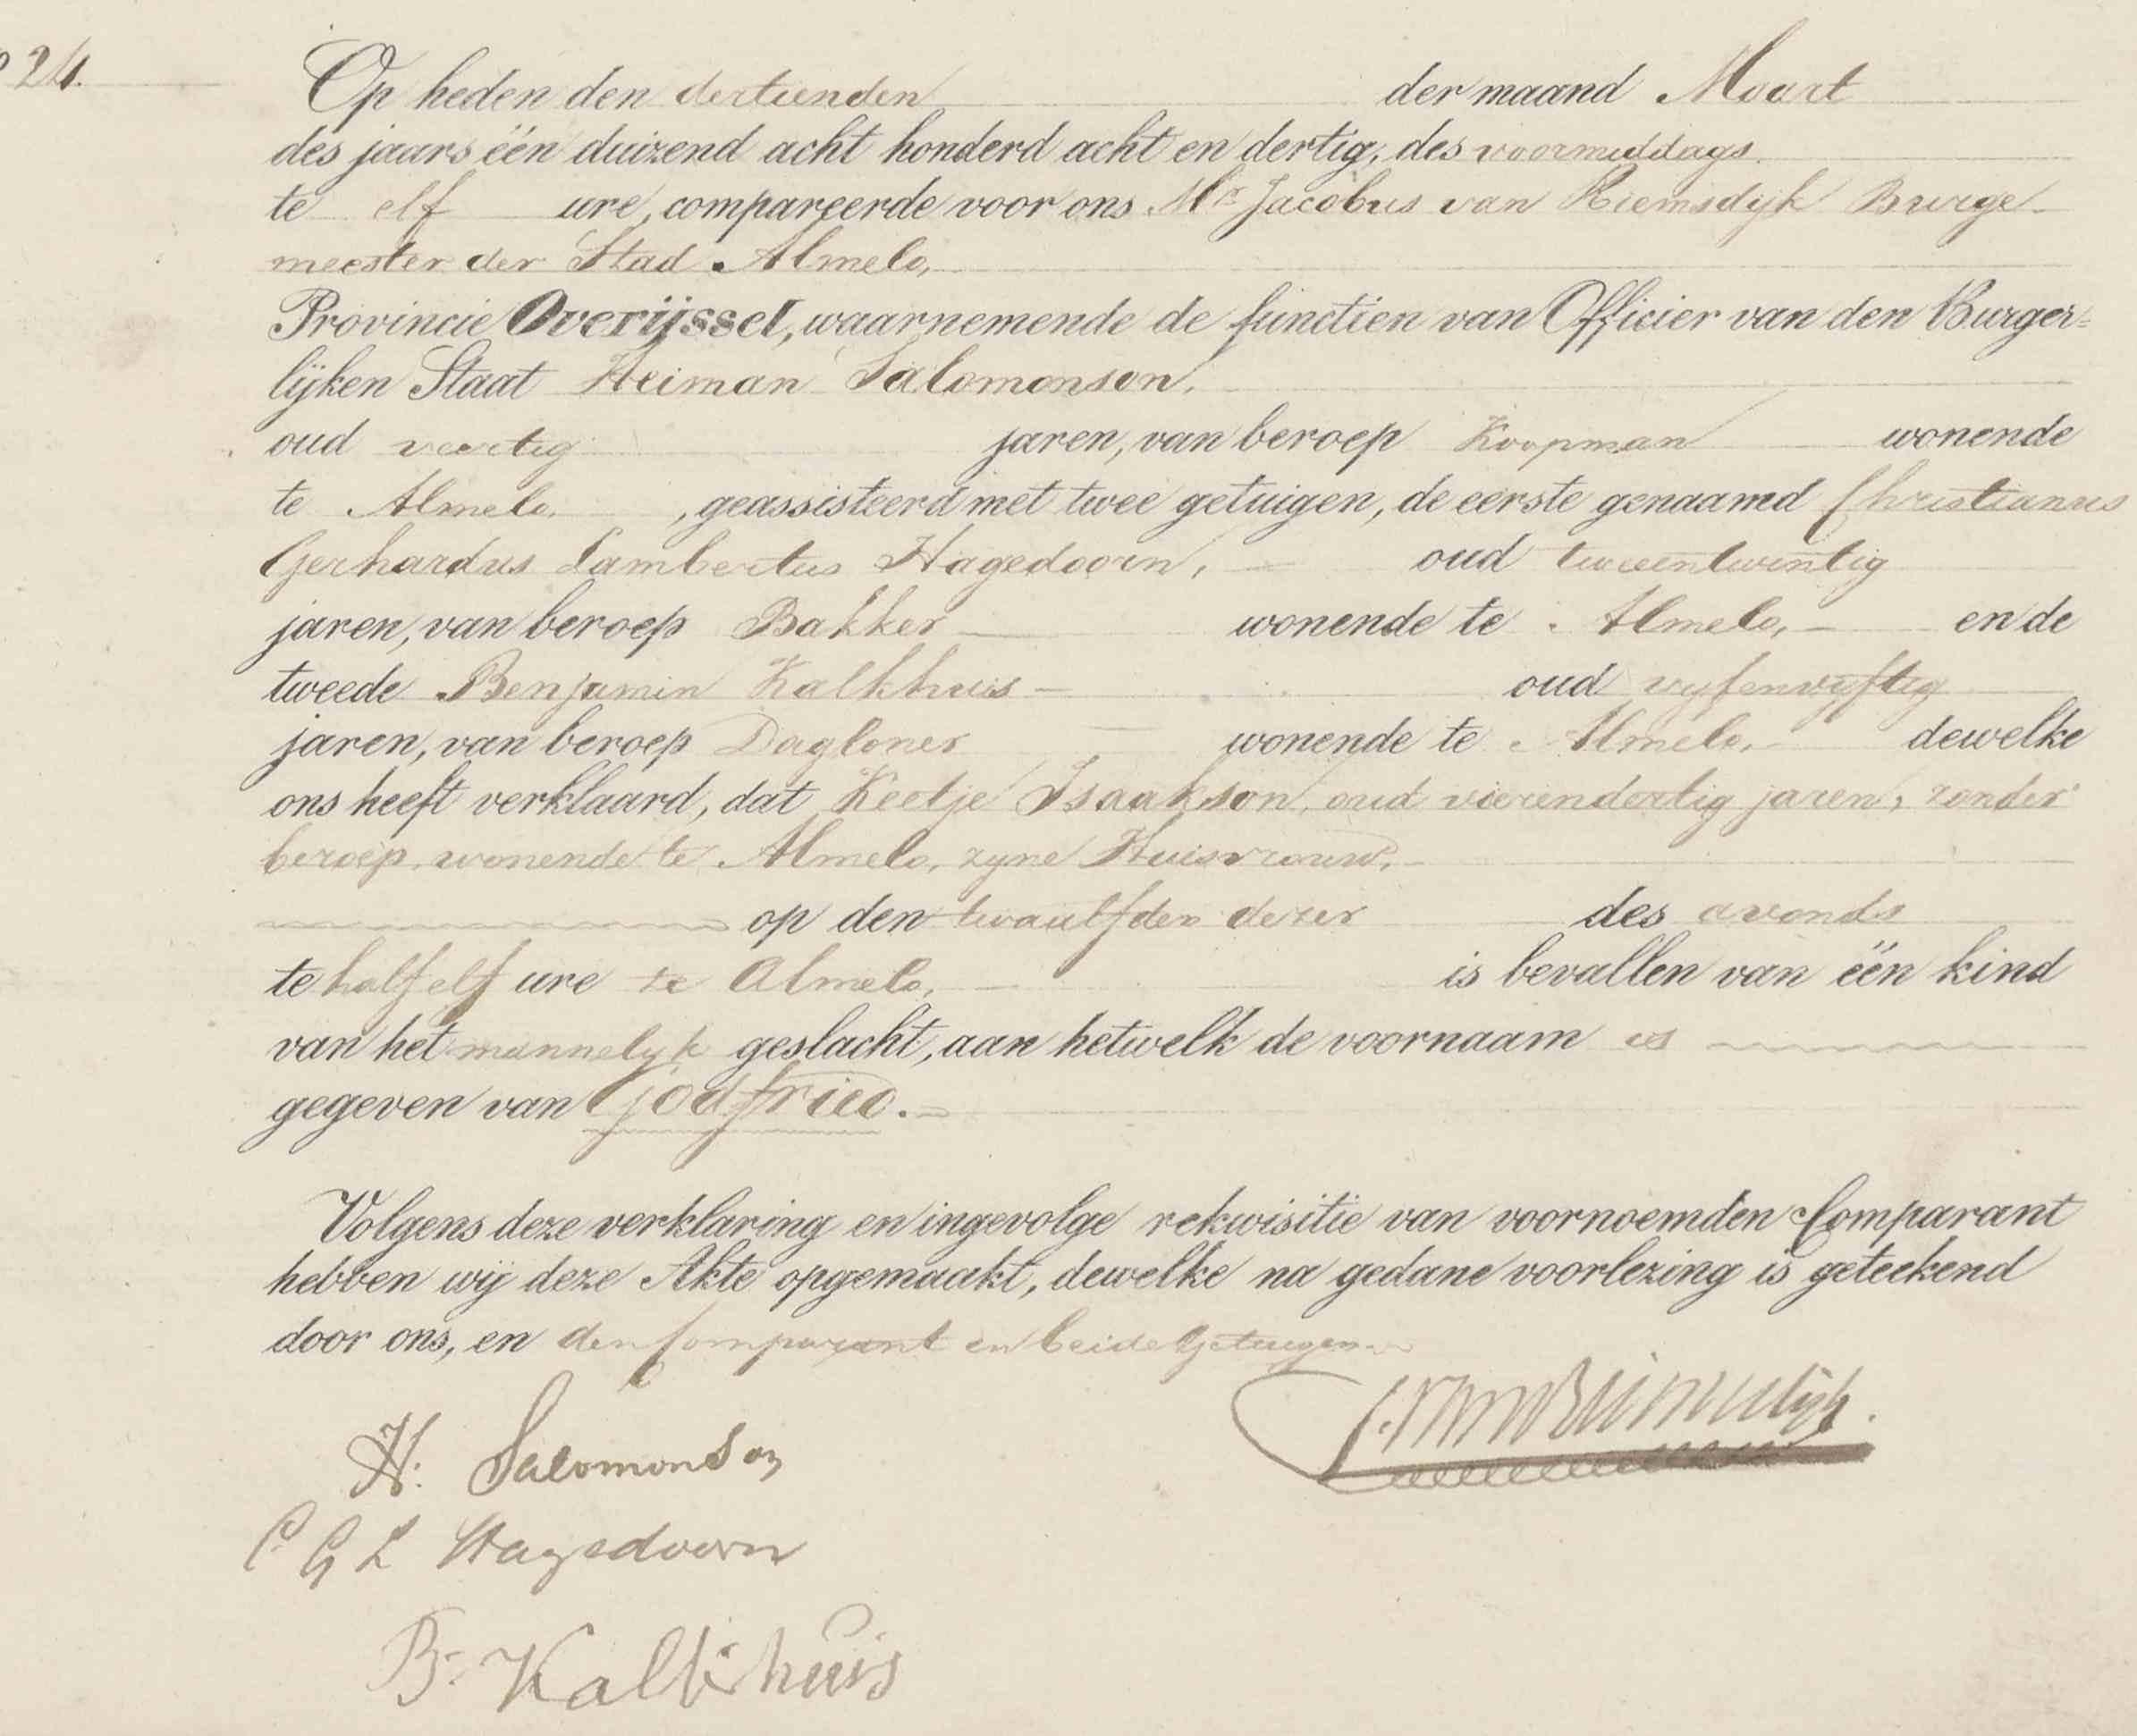 24.
Op heden den dertienden der maand Maart
des jaars één duizend acht honderd acht en dertig, des voormiddags
te elf ure, compareerde voor ons Mr Jacobus van Riemsdijk Burge-
meester der Stad Almelo,
Provincie Overijssel, waarnemende de functien van Officier van den Burger=
lijken Staat Heiman Salomonson,
oud veertig jaren, van beroep Koopman wonende
te Almelo, geassisteerd met twee getuigen, de eerste genaamd Christianus
Gerhardus Lambertus Hagedoorn, oud tweeentwintig
jaren, van beroep Bakker wonende te Almelo, en de
tweede Benjamin Kalkhuis oud vyfenvyftig
jaren, van beroep Dagloner wonende te Almelo, dewelke
ons heeft verklaard, dat Keetje Isaakson, oud vierendertig jaren, zonder
beroep, wonende te Almelo, zyne Huisvrouw,
op den twaalfden dezer des avonds
te half elf ure te Almelo, is bevallen van één kind
van het mannelyk geslacht, aan hetwelk de voornaam is
gegeven van Godfried.
Volgens deze verklaring en ingevolge rekwisitie van voornoemden Comparant
hebben wij deze Akte opgemaakt, dewelke na gedane voorlezing is geteekend
door ons, en den Comparant en beide Getuigen
J. van Riemsdijk.
H. Salomonson
C. G L Hagedoorn
B. Kalkhuis